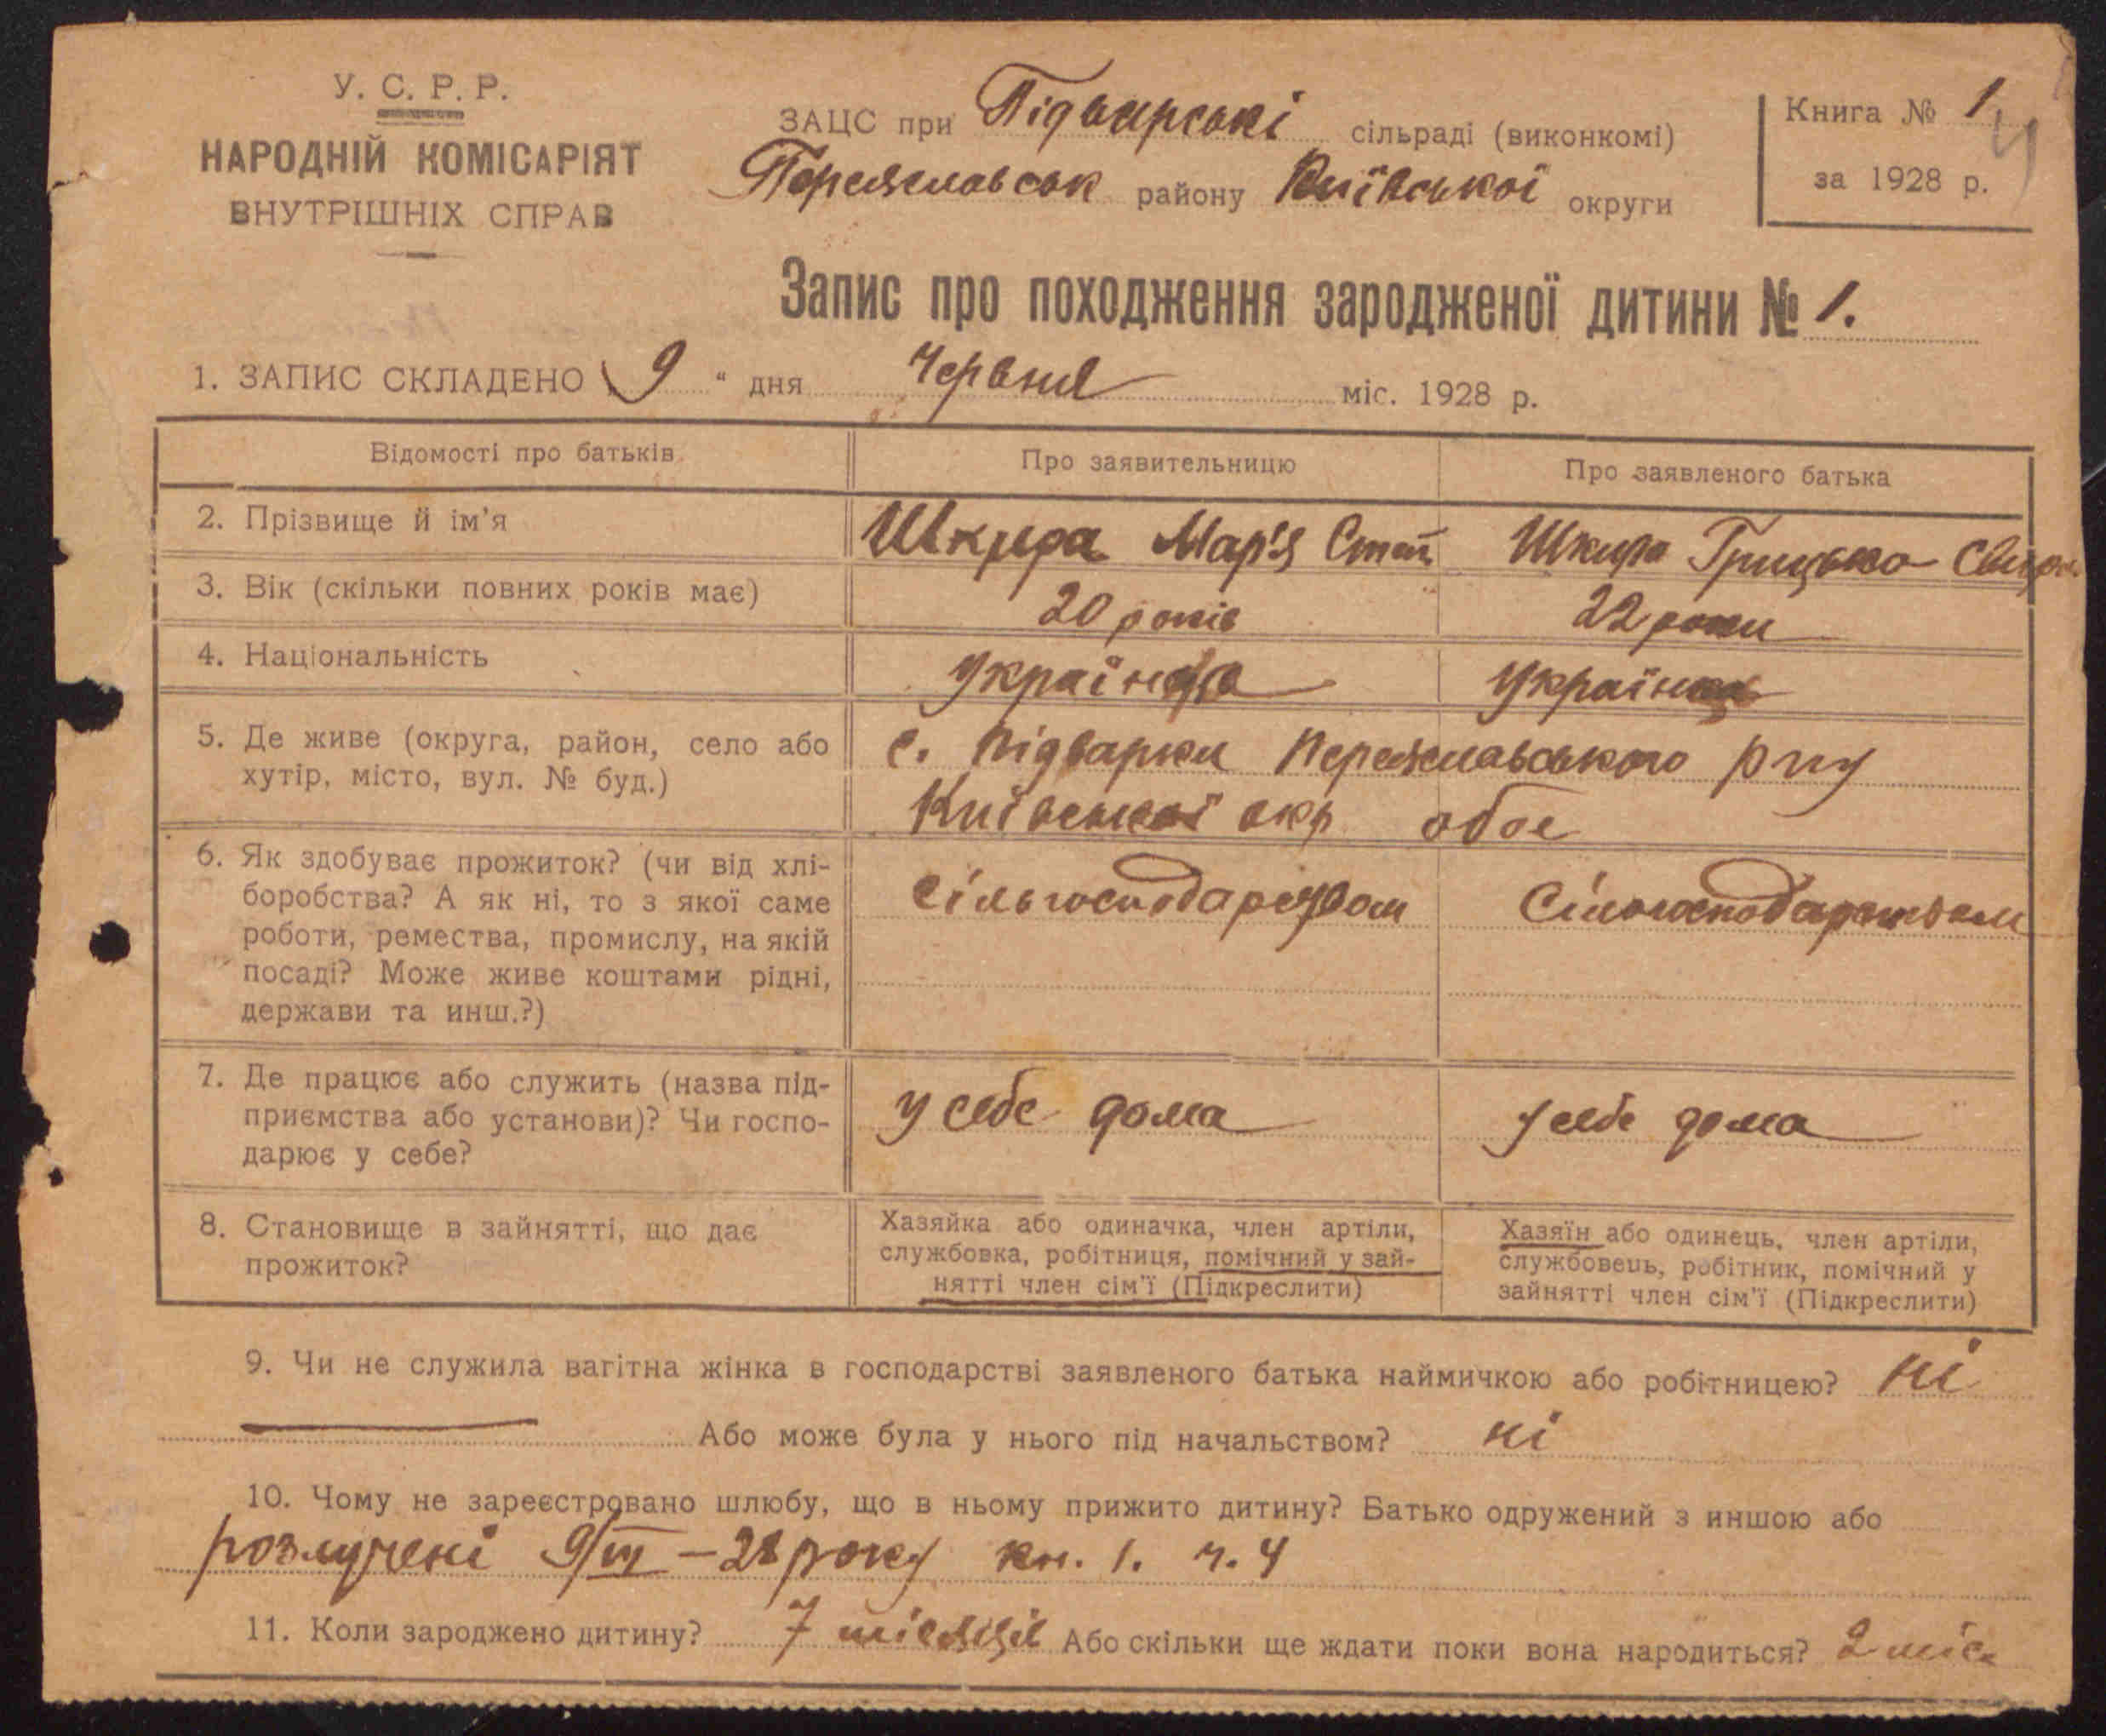 У. С. Р. Р.
НАРОДНІЙ КОМІСАРІЯТ
ВНУТРІШНІХ СПРАВ
ЗАЦС при Підварські сільраді (виконкомі)
Переяславськ району Київської округи
Книга № 1
4
за 1928 р.
Запис про походження зародженої дитини № 1.
1. ЗАПИС СКЛАДЕНО „ 9 “ дня Червня міс. 1928 р.
Відомості про батьків Про заявительницю Про заявленого батька
2. Прізвище й ім’я Шкира Мар'я Шкира Грицько
3. Вік (скільки повних років має) 20 років 22 роки
4. Національність Українка Українець
5. Де живе (округа, район, село або
хутір, місто, вул. № буд.)
с. Підварки Переяславського р-ну
Київської окр обоє
6. Як здобуває прожиток? (чи від хлі-
боробства? А як ні, то з якої саме
роботи, ремества, промислу, на якій
посаді? Може живе коштами рідні,
держави та инш.?)
Сільгосподарством Сільгосподарством
7. Де працює або служить (назва під-
приємства або установи)? Чи госпо-
дарює у себе?
у себе дома у себе дома
8. Становище в зайнятті, що дає
прожиток?
Хазяйка або одиначка, член артіли,
службовка, робітниця, помічний у зай-
нятті член сім’ї (Підкреслити)
Хазяїн або одинець, член артіли,
службовець, робітник, помічний у
зайнятті член сім’ї (Підкреслити)
9. Чи не служила вагітна жінка в господарстві заявленого батька наймичкою або робітницею? ні
Або може була у нього під начальством? ні
10. Чому не зареєстровано шлюбу, що в ньому прижито дитину? Батько одружений з иншою або
розлучені 9/VI – 28 року кн. 1. ч. 4
11. Коли зароджено дитину? 7 місяців Або скільки ще ждати поки вона народиться? 2 міс.